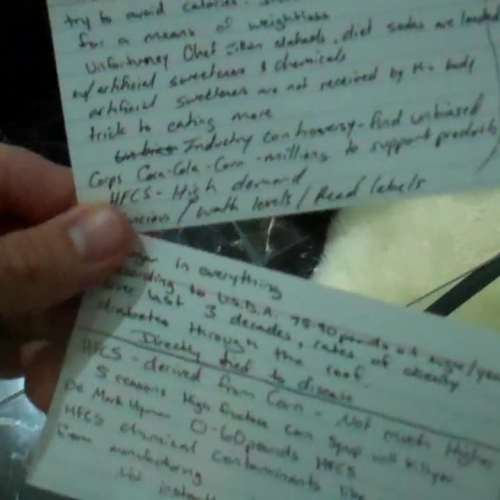 try to avoid calories.
for a means of weightloss
Unfortuney Chef Jilian statests, diet sodas are loaded
w/artificial sweeteners & chemicals
artificial sweeteners are not received by the body
trick to eating more
Industry controversy - find unbiased
Corps Coca-Cola-Corn - millions to support productivity
HFCS - High demand
/ watch levels / Read labels
in everything
according to U.S.D.A. 75-90 pounds of sugar/year
over last 3 decades, rates of obesity
diabetes through the roof.
Directly tied to disease
HFCS - derived from Corn - Not much higher
5 reasons High fructose corn syrup will kill you
Dr Mark Hyman 0-60 pounds HFCS
HFCS chemical contaminants like
from manufacturing
Not